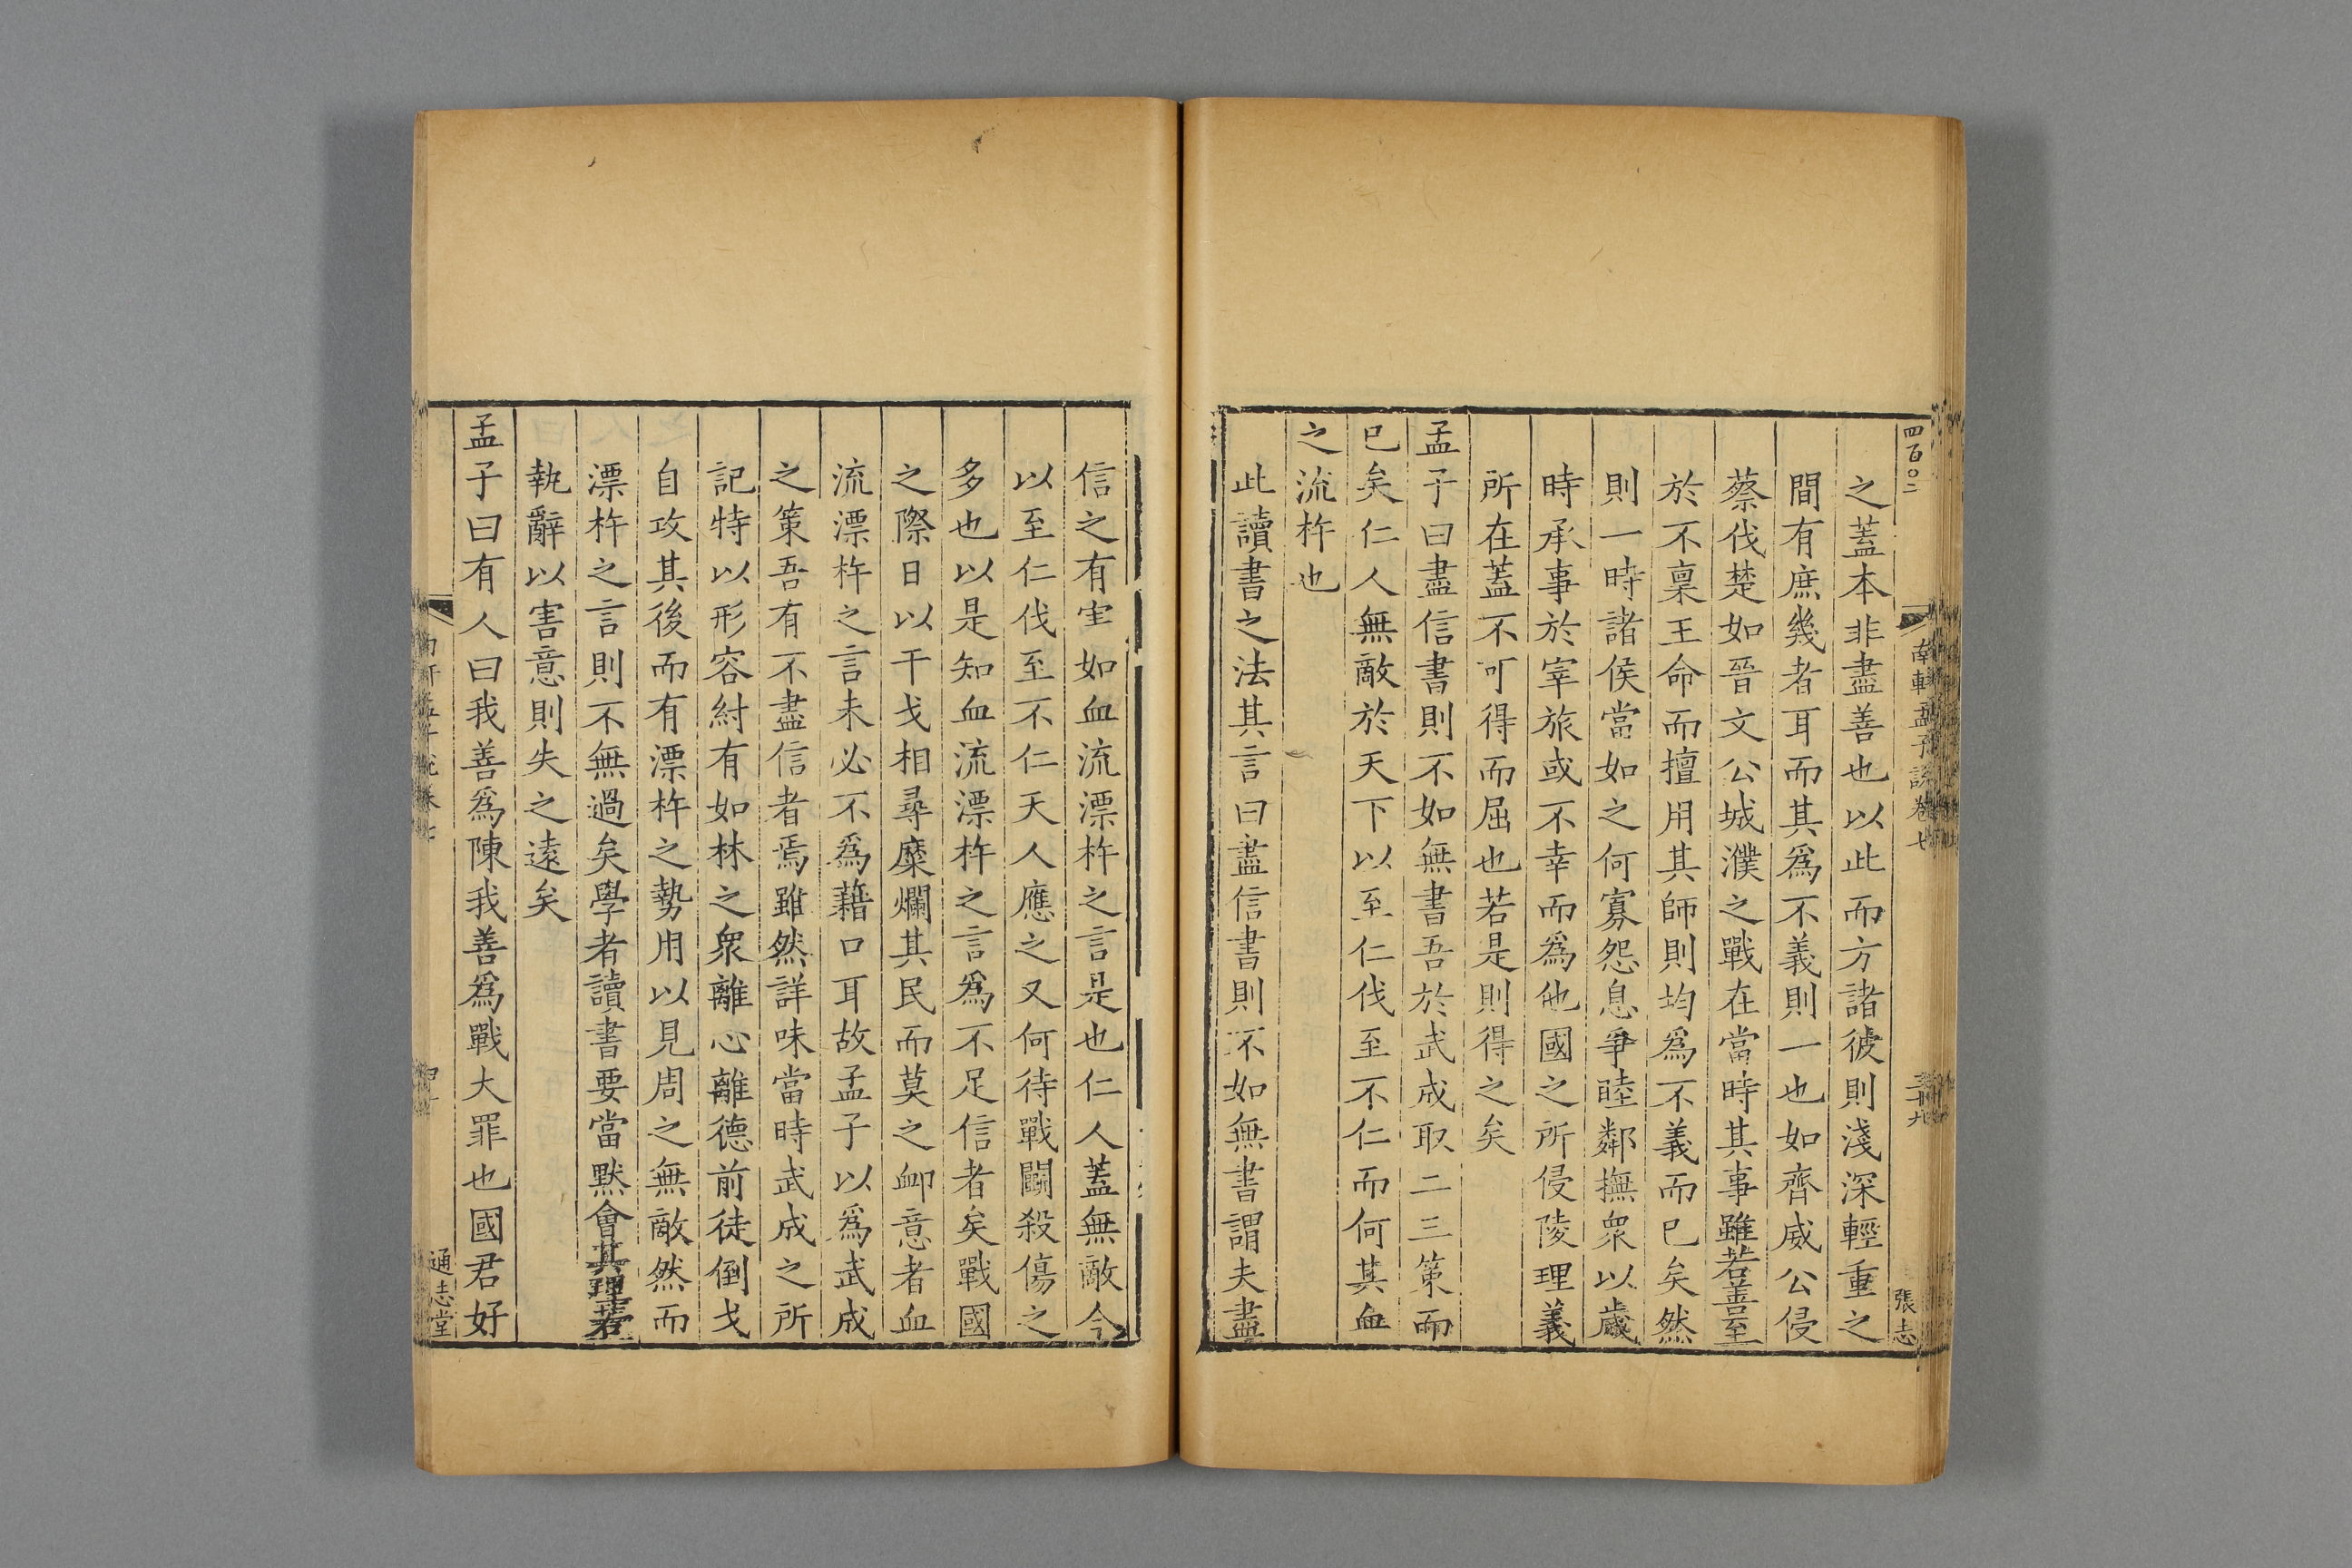 四百〇二
南軒孟子說卷七
二十九
張志
之蓋本非盡善也以此而方諸彼則淺深輕重之
間有庶幾者耳而其爲不義則一也如齊威公侵
蔡伐楚如晉文公城濮之戰在當時其事雖若善至
於不稟王命而擅用其師則均爲不義而已矣然
則一時諸侯當如之何寡怨息爭睦鄰撫衆以歲
時承事於宰旅或不幸而爲他國之所侵陵理義
所在蓋不可得而屈也若是則得之矣
孟子曰盡信書則不如無書吾於武成取二三策而
已矣仁人無敵於天下以至仁伐至不仁而何其血
之流杵也
此讀書之法其言曰盡信書則不如無書謂夫盡
信之有害如血流漂杵之言是也仁人蓋無敵今
以至仁伐至不仁天人應之又何待戰鬭殺傷之
多也以是知血流漂杵之言爲不足信者矣戰國
之際日以干戈相尋糜爛其民而莫之卹意者血
流漂杵之言未必不爲藉口耳故孟子以爲武成
之策吾有不盡信者焉雖然詳味當時武成之所
記特以形容紂有如林之衆離心離德前徒倒戈
自攻其後而有漂杵之勢用以見周之無敵然而
漂杵之言則不無過矣學者讀書要當默會其理若
執辭以害意則失之遠矣
孟子曰有人曰我善爲陳我善爲戰大罪也國君好
通志堂